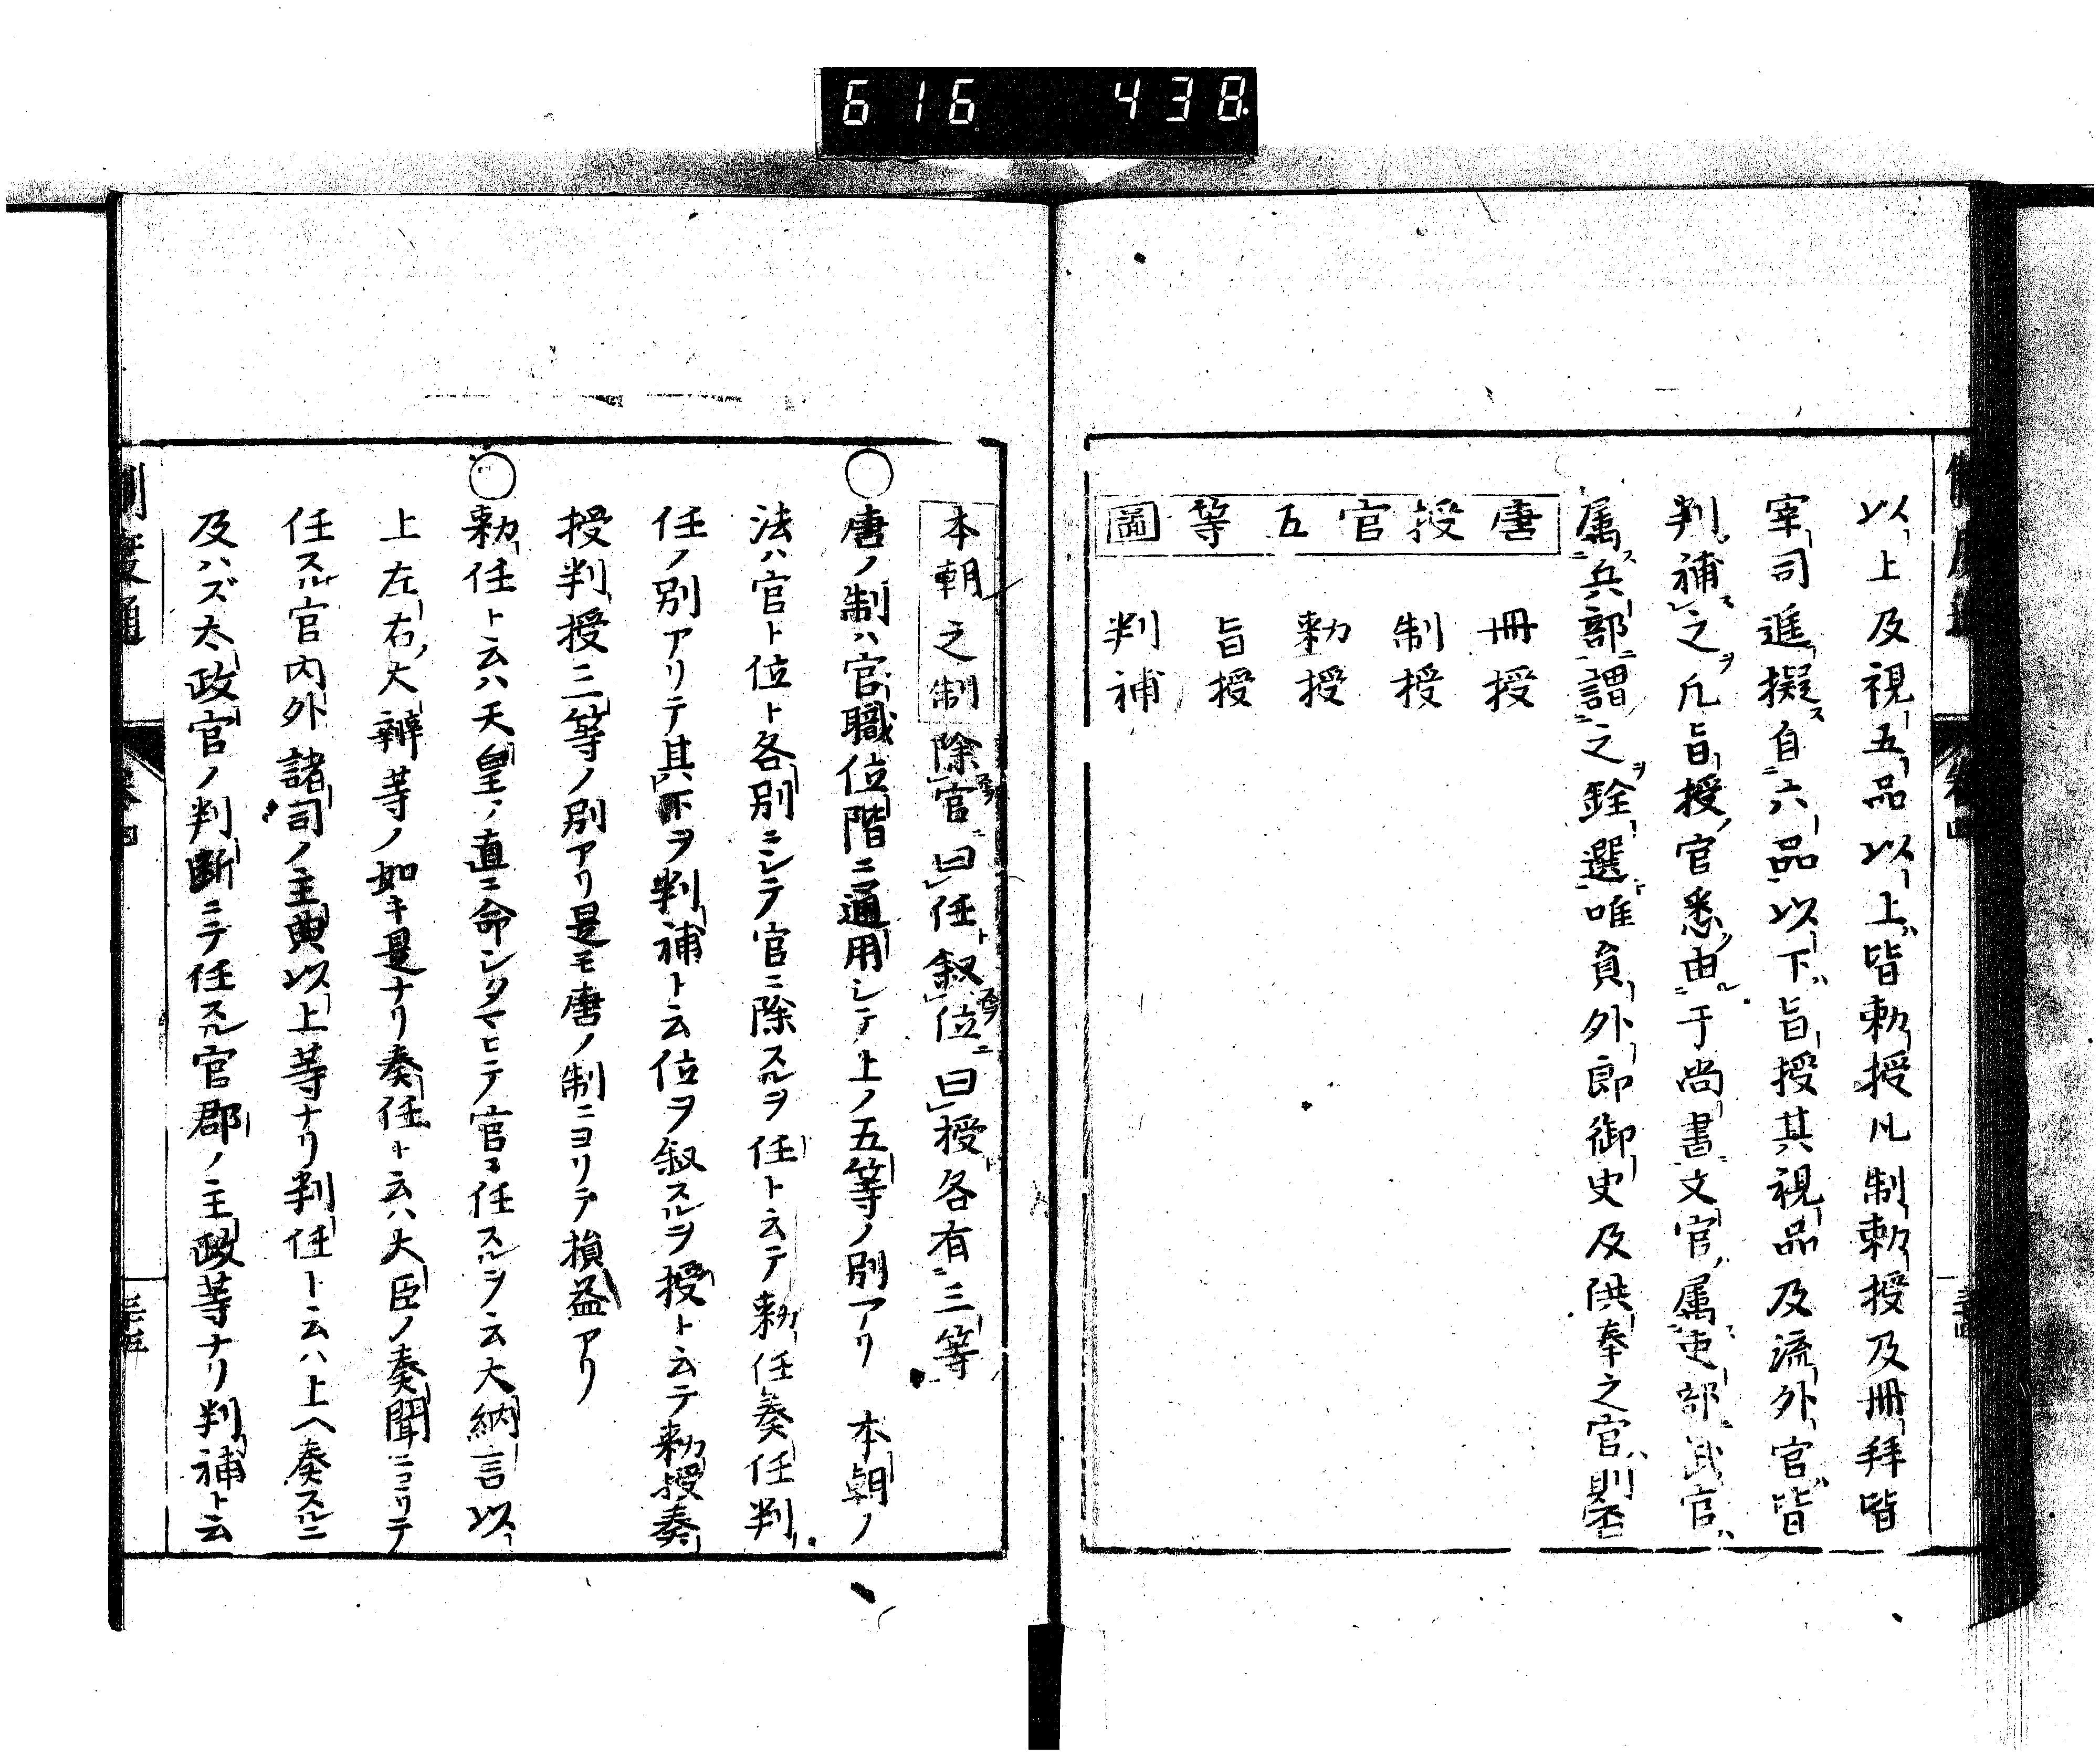 616 438
以上及視五品以上皆勅授凡制勅授及冊拜皆
宰司進擬自六品以下旨授其視品及流外官皆
判補之凡旨授官悉由于尚書文官属吏部武官
属兵部謂之銓選唯員外郎御史及供奉之官則否
唐授官五等圖
冊授
制授
勅授
旨授
判補
本朝之制除官曰任叙位曰授各有三等
○唐ノ制ハ官職位階ニ通用シテ上ノ五等ノ別アリ 本朝ノ
法ハ官ト位ト各別ニシテ官ニ除スルヲ任ト云テ勅任奏任判
任ノ別アリテ其下ヲ判補ト云位ヲ叙スルヲ授ト云テ勅授奏
授判授三等ノ別アリ是モ唐ノ制ニヨリテ損益アリ
○勅任ト云ハ天皇ノ直ニ命シタマヒテ官ニ任スルヲ云大納言以
上左右大辨等ノ如キ是ナリ奏任ト云ハ大臣ノ奏聞ニヨリテ
任スル官内外諸司ノ主典以上等ナリ判任ト云ハ上ヘ奏スルニ
及ハズ太政官ノ判断ニテ任スル官郡ノ主政等ナリ判補ト云
制度通